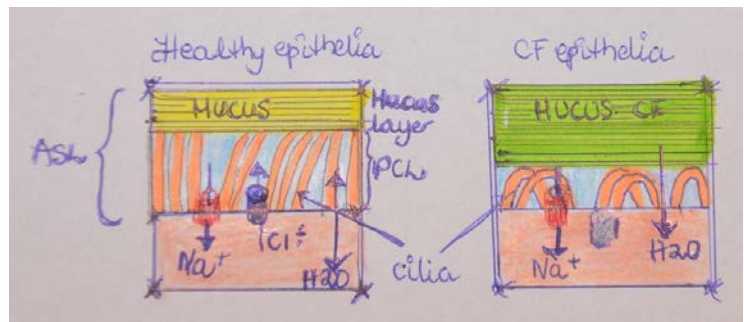 Healthy epithelia
CF epithelia
MUCUS
Mucus layer
ASL
PCL
Na+
Cl-
H2O
cilia
MUCUS-CF
Na+
H2O